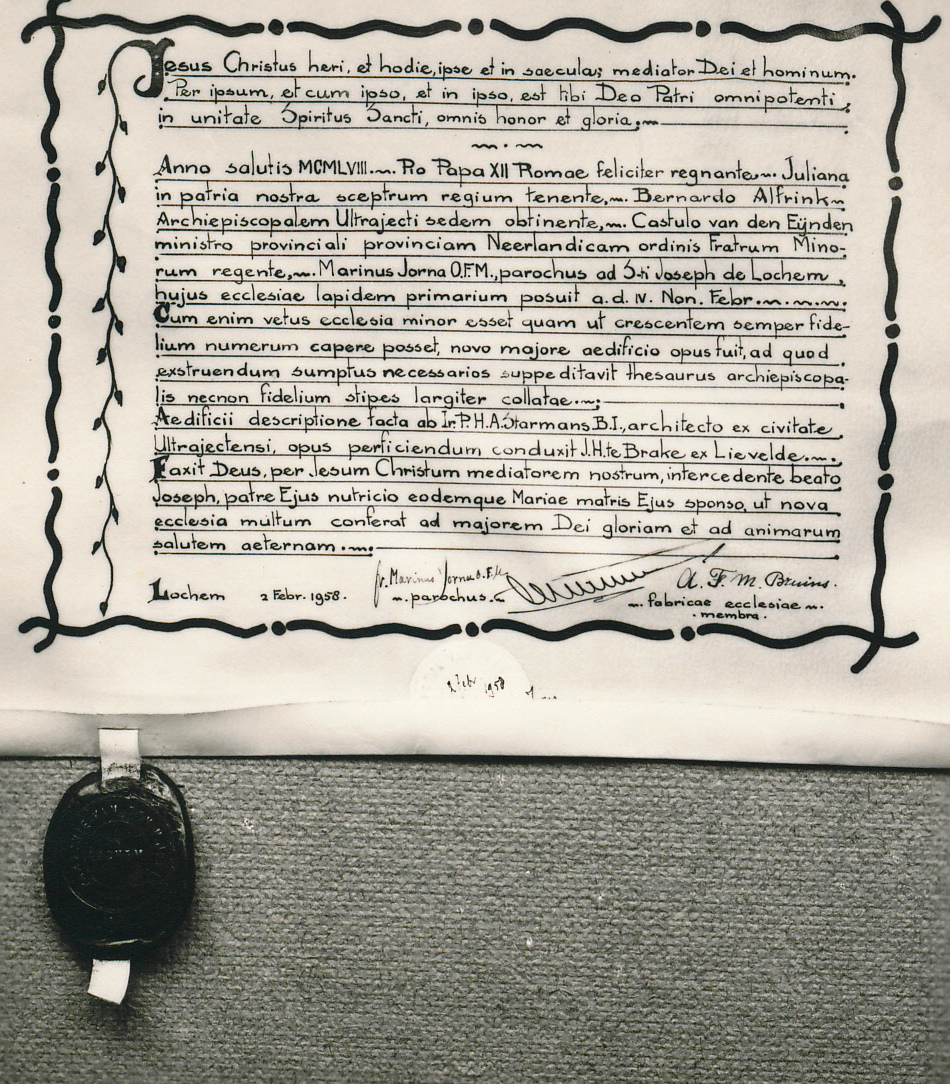 Jesus Christus heri, et hodie, ipse et in saecula; mediator Dei et hominum.
Per ipsum, et cum ipso, et in ipso, est tibi Deo Patri omnipotenti,
in unitate Spiritus Sancti, omnis honor et gloria;
Anno salutis MCMLVIII. Pio Papa XII Romae feliciter regnante, Juliana
in patria nostra sceptrum regium tenente, Bernardo Alfrink
Archiepiscopalem Ultrajecti sedem obtinente, Castulo van den Eijnden
ministro provinciali provinciam Neerlandicam ordinis Fratrum Mino-
rum regente, Marinus Jorna O.F.M., parochus ad S-ti Joseph de Lochem,
hujus ecclesiae lapidem primarium posuit a.d. IV. Non. Febr.
Cum enim vetus ecclesia minor esset quam ut crescentem semper fide-
lium numerum capere posset, novo majore aedificio opus fuit, ad quod
exstruendum sumptus necessarios suppeditavit thesaurus archiepiscopa-
lis necnon fidelium stipes largiter collatae.
Aedificii descriptione facta ab Ir. P.H.A. Starmans B.I., architecto ex civitate
Ultrajectensi, opus perficiendum conduxit J.H. te Brake ex Lievelde.
Faxit Deus, per Jesum Christum mediatorem nostrum, intercedente beato
Joseph, patre Ejus nutricio eodemque Mariae matris Ejus sponso, ut nova
ecclesia multum conferat ad majorem Dei gloriam et ad animarum
salutem aeternam.
Lochem 2 Febr. 1958.
fr. Marinus Jorna O.F.M.
parochus.
A. F. M. Bruins.
fabricae ecclesiae
membra.
2 Febr 1958